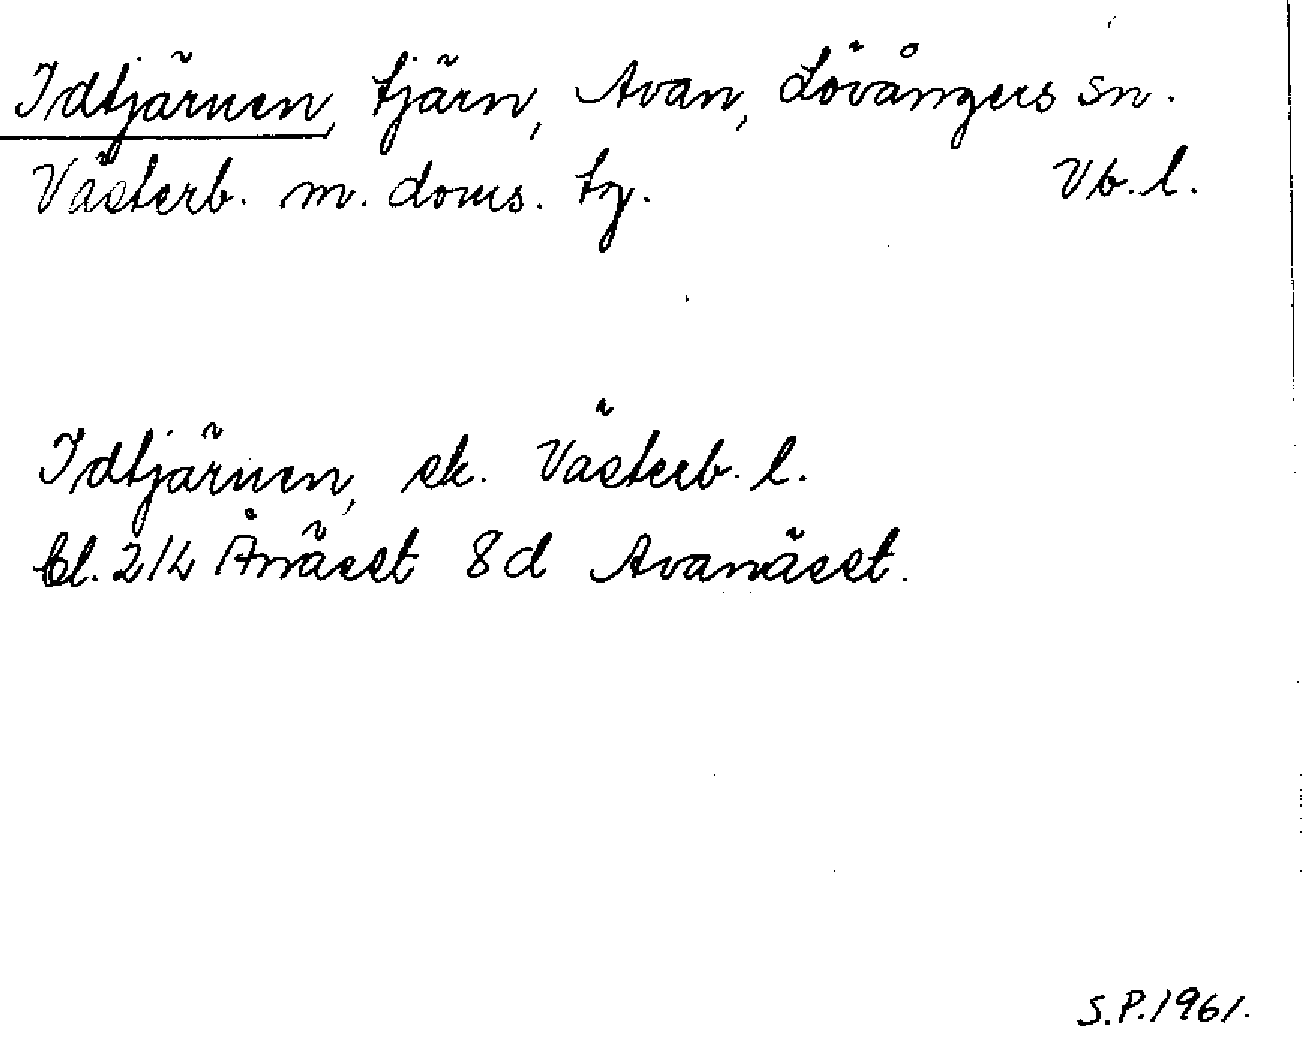 Idtjärnen, tjärn, Avan, Lövångers sn.
Västerb. m. doms. tg. Vb. l.
Idtjärnen, ek. Västerb. l.
bl. 214 Ånäset 8d Avanäset.
S.P. 1961.